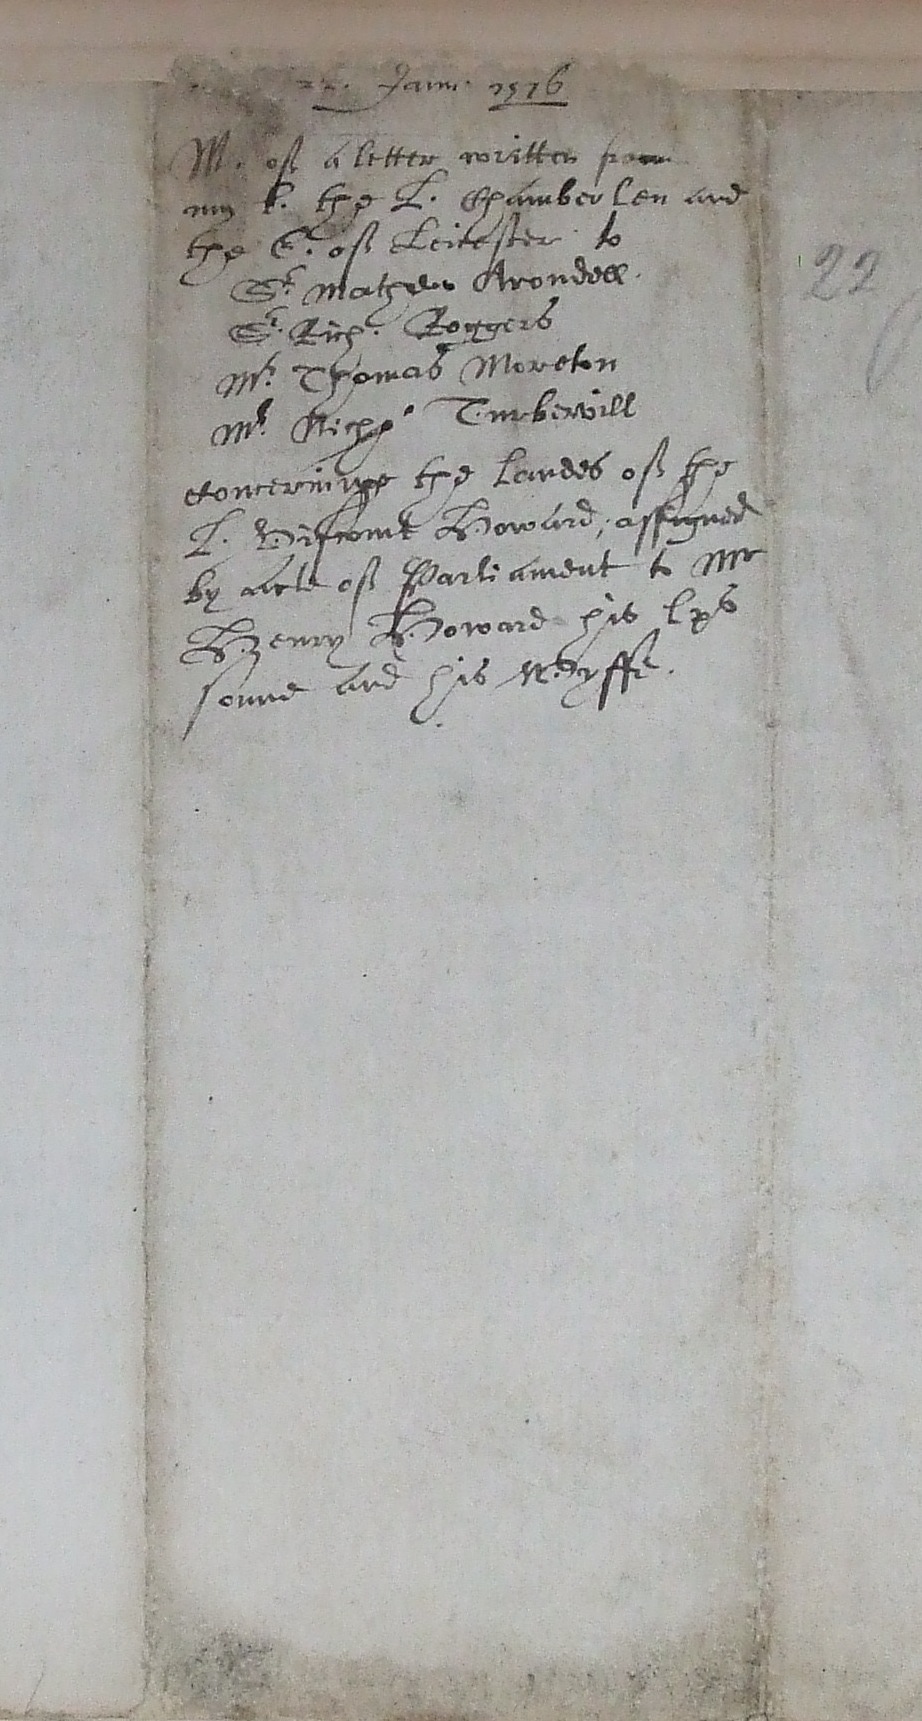 22. Janu. 1576
M. off a letter written from
my L. the L. Chamberlen and
the E. off Leicester to
Sr. Mathew Arondell.
Sr. Rich. Roggers
Mr. Thomas Moreton
Mr. Turbervill
concerninge the landes off the
L. Viscount Howard, assigned
by acte off Parliament to Mr
Henry Howard his lps
sonne and his wyffe.
22